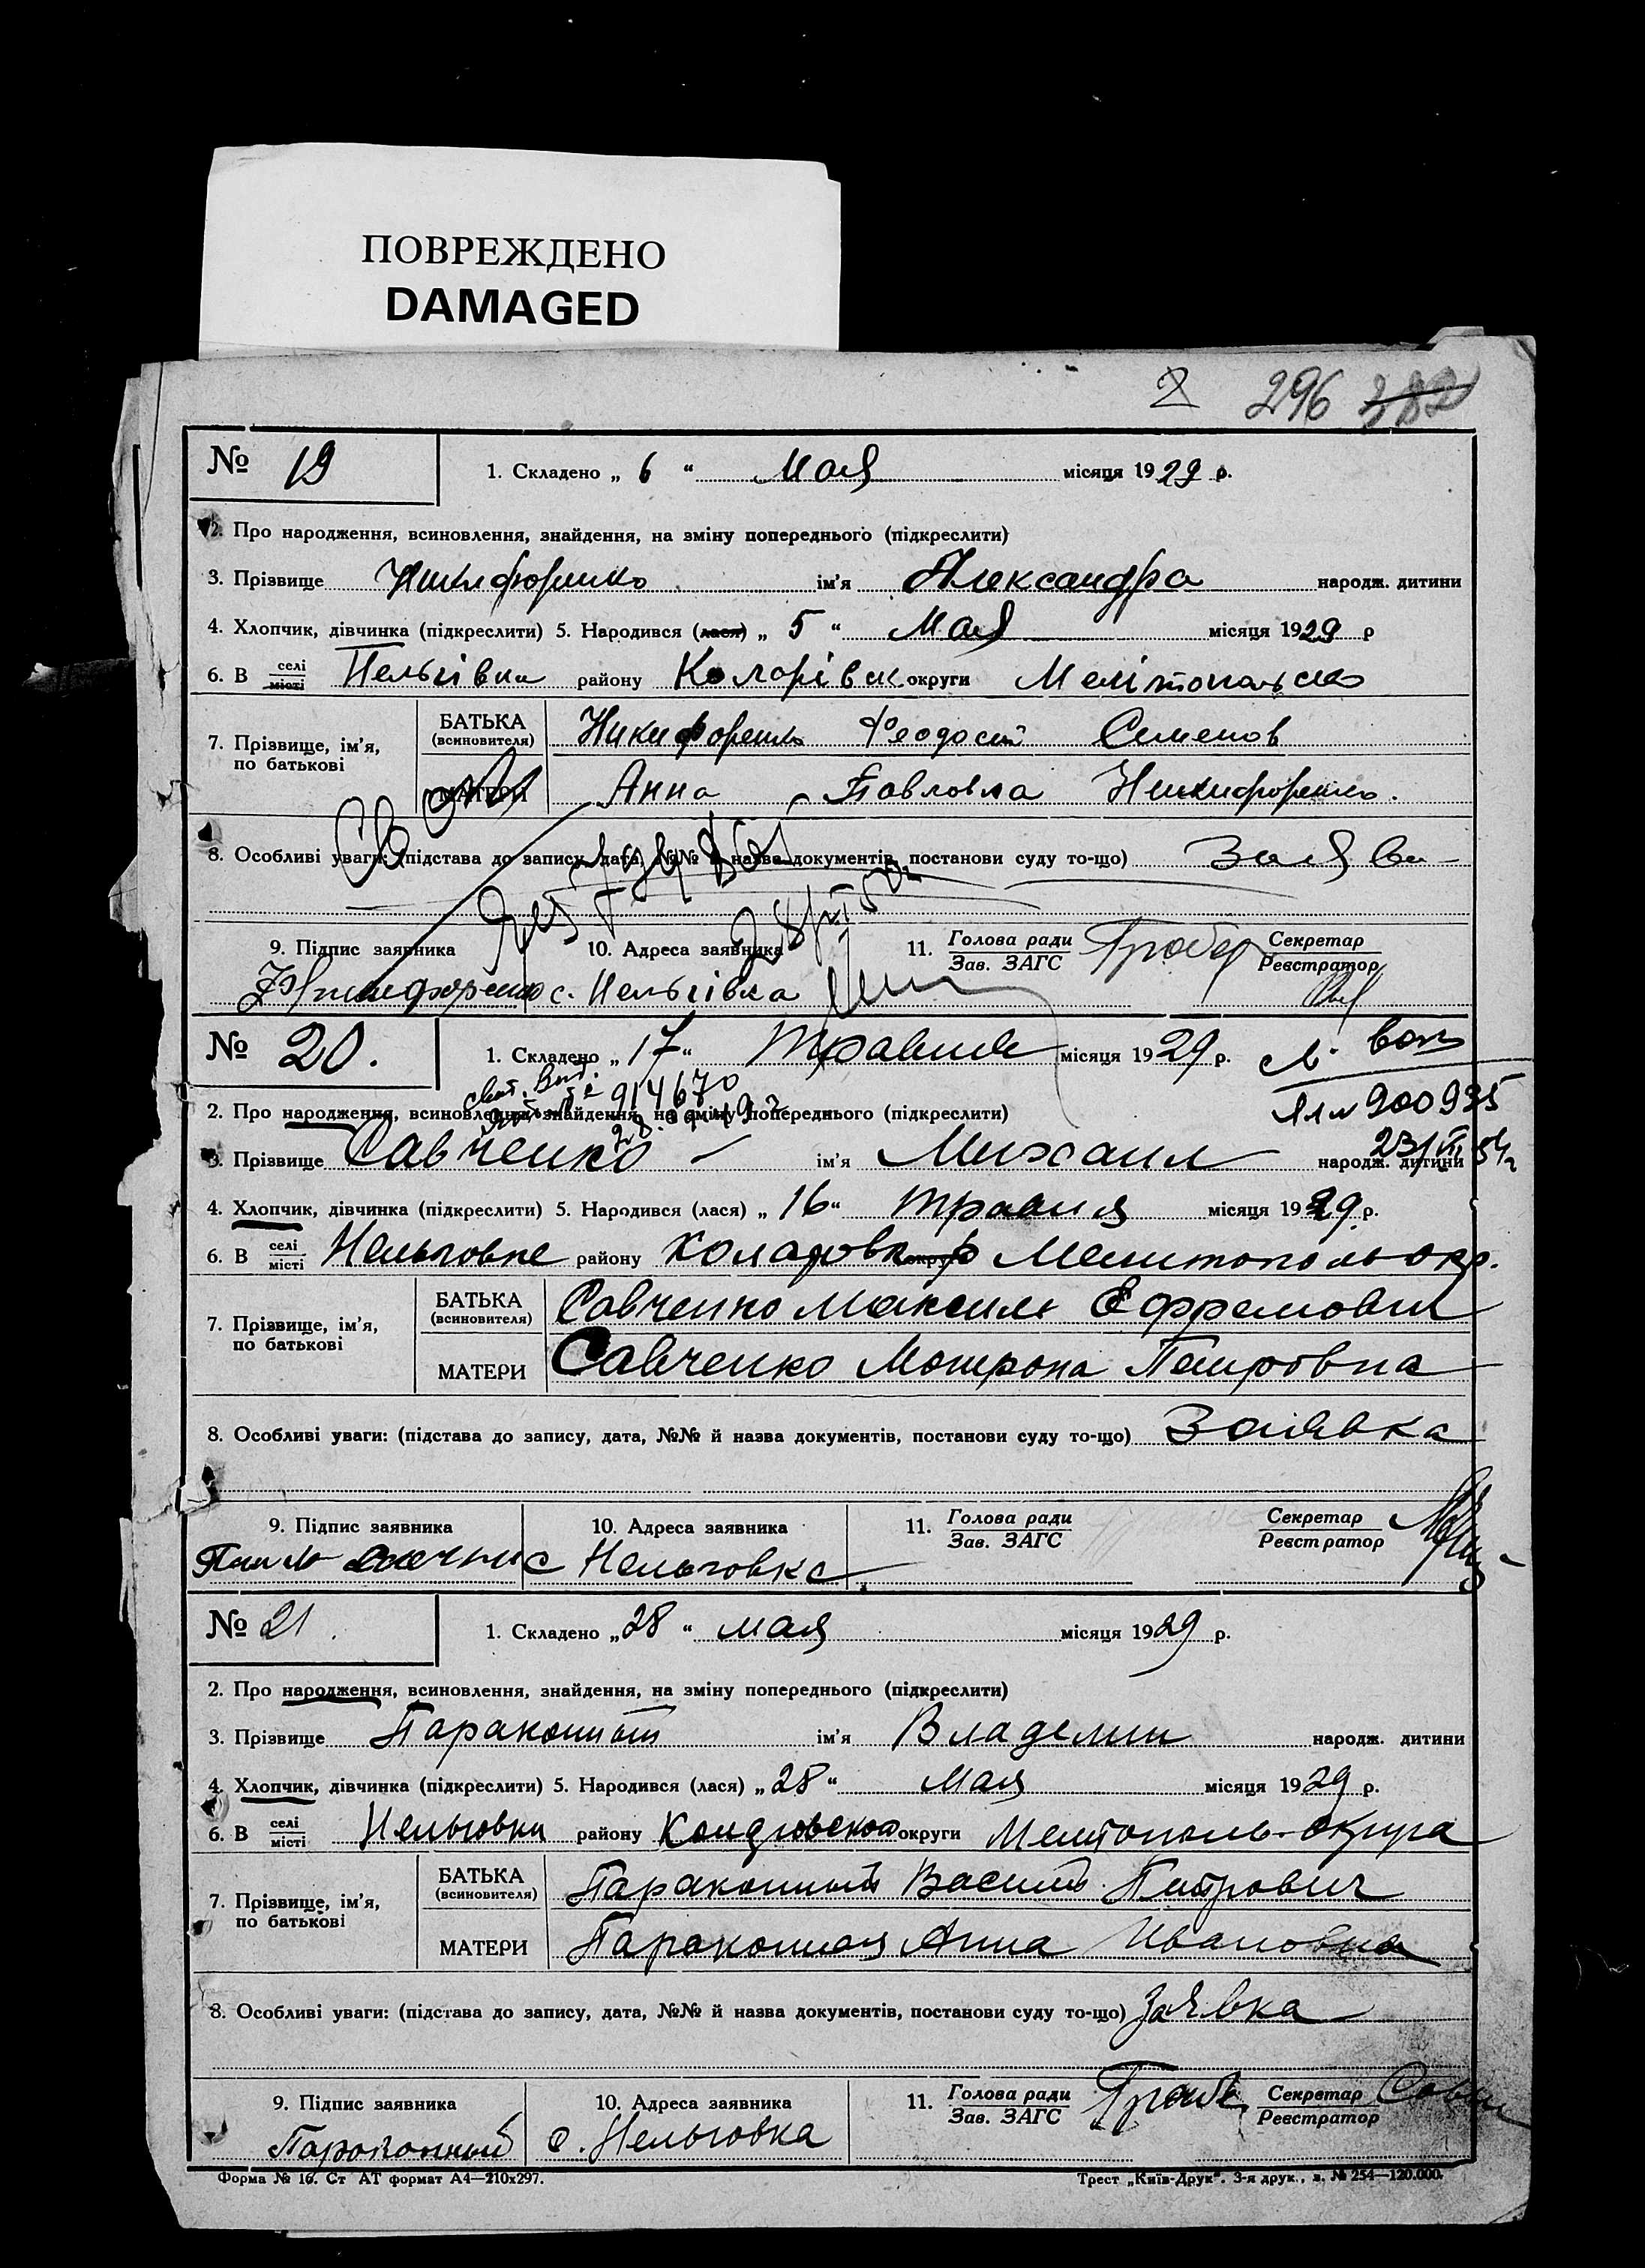 ПОВРЕЖДЕНО
DAMAGED
296 382
№ 19 1. Складено „ 6 “ Мая місяця 1929 р.
2. Про народження, всиновлення, знайдення, на зміну попереднього (підкреслити)
3. Прізвище Никифоренко ім'я Александра народж. дитини
4. Хлопчик, дівчинка (підкреслити) 5. Народився (лася) „ 5 “ Мая місяця 1929 р
6. В селі місті Нельгівка району Коларівськ округи Мелітопольско
7. Прізвище, ім'я, по батькові БАТЬКА (всиновителя) Никифоренко Феодосий Семенов
МАТЕРИ Анна Павловна Никифоренко.
8. Особливі уваги: (підстава до запису, дата, №№ й назва документів, постанови суду то-що) Заява
9. Підпис заявника 10. Адреса заявника 11. Голова ради Зав. ЗАГС Секретар Реєстратор
Никифоренко с. Нельгівка
№ 20. 1. Складено „ 17 “ травня місяця 1929 р.
914670
2. Про народження, всиновлення, знайдення, на зміну попереднього (підкреслити) 900935
3. Прізвище Савченко ім'я Михаил народж. дитини 23/VI 54г
4. Хлопчик, дівчинка (підкреслити) 5. Народився (лася) „ 16 “ травня місяця 1929 р.
6. В селі місті Нельговке району Коларовк р округи Мелитополь окр.
7. Прізвище, ім'я, по батькові БАТЬКА (всиновителя) Савченко Максим Ефремович
МАТЕРИ Савченко Мотрона Петровна
8. Особливі уваги: (підстава до запису, дата, №№ й назва документів, постанови суду то-що) Заявка
9. Підпис заявника 10. Адреса заявника 11. Голова ради Зав. ЗАГС Секретар Реєстратор
с Нельговка
№ 21 1. Складено „ 28 “ мая місяця 1929 р.
2. Про народження, всиновлення, знайдення, на зміну попереднього (підкреслити)
3. Прізвище Параконный ім'я Владемир народж. дитини
4. Хлопчик, дівчинка (підкреслити) 5. Народився (лася) „ 28 “ Мая місяця 1929 р.
6. В селі місті Нельговки району округи Мелітополь-округа
7. Прізвище, ім'я, по батькові БАТЬКА (всиновителя) Параконный Василь Петрович
МАТЕРИ Параконная Анна Ивановна
8. Особливі уваги: (підстава до запису, дата, №№ й назва документів, постанови суду то-що) Заявка
9. Підпис заявника 10. Адреса заявника 11. Голова ради Зав. ЗАГС Секретар Реєстратор
Параконный с. Нельговка
Форма № 16. Ст АТ формат А4—210х297. Трест „Київ-Друк“. 3-я друк., з. № 254—120.000.